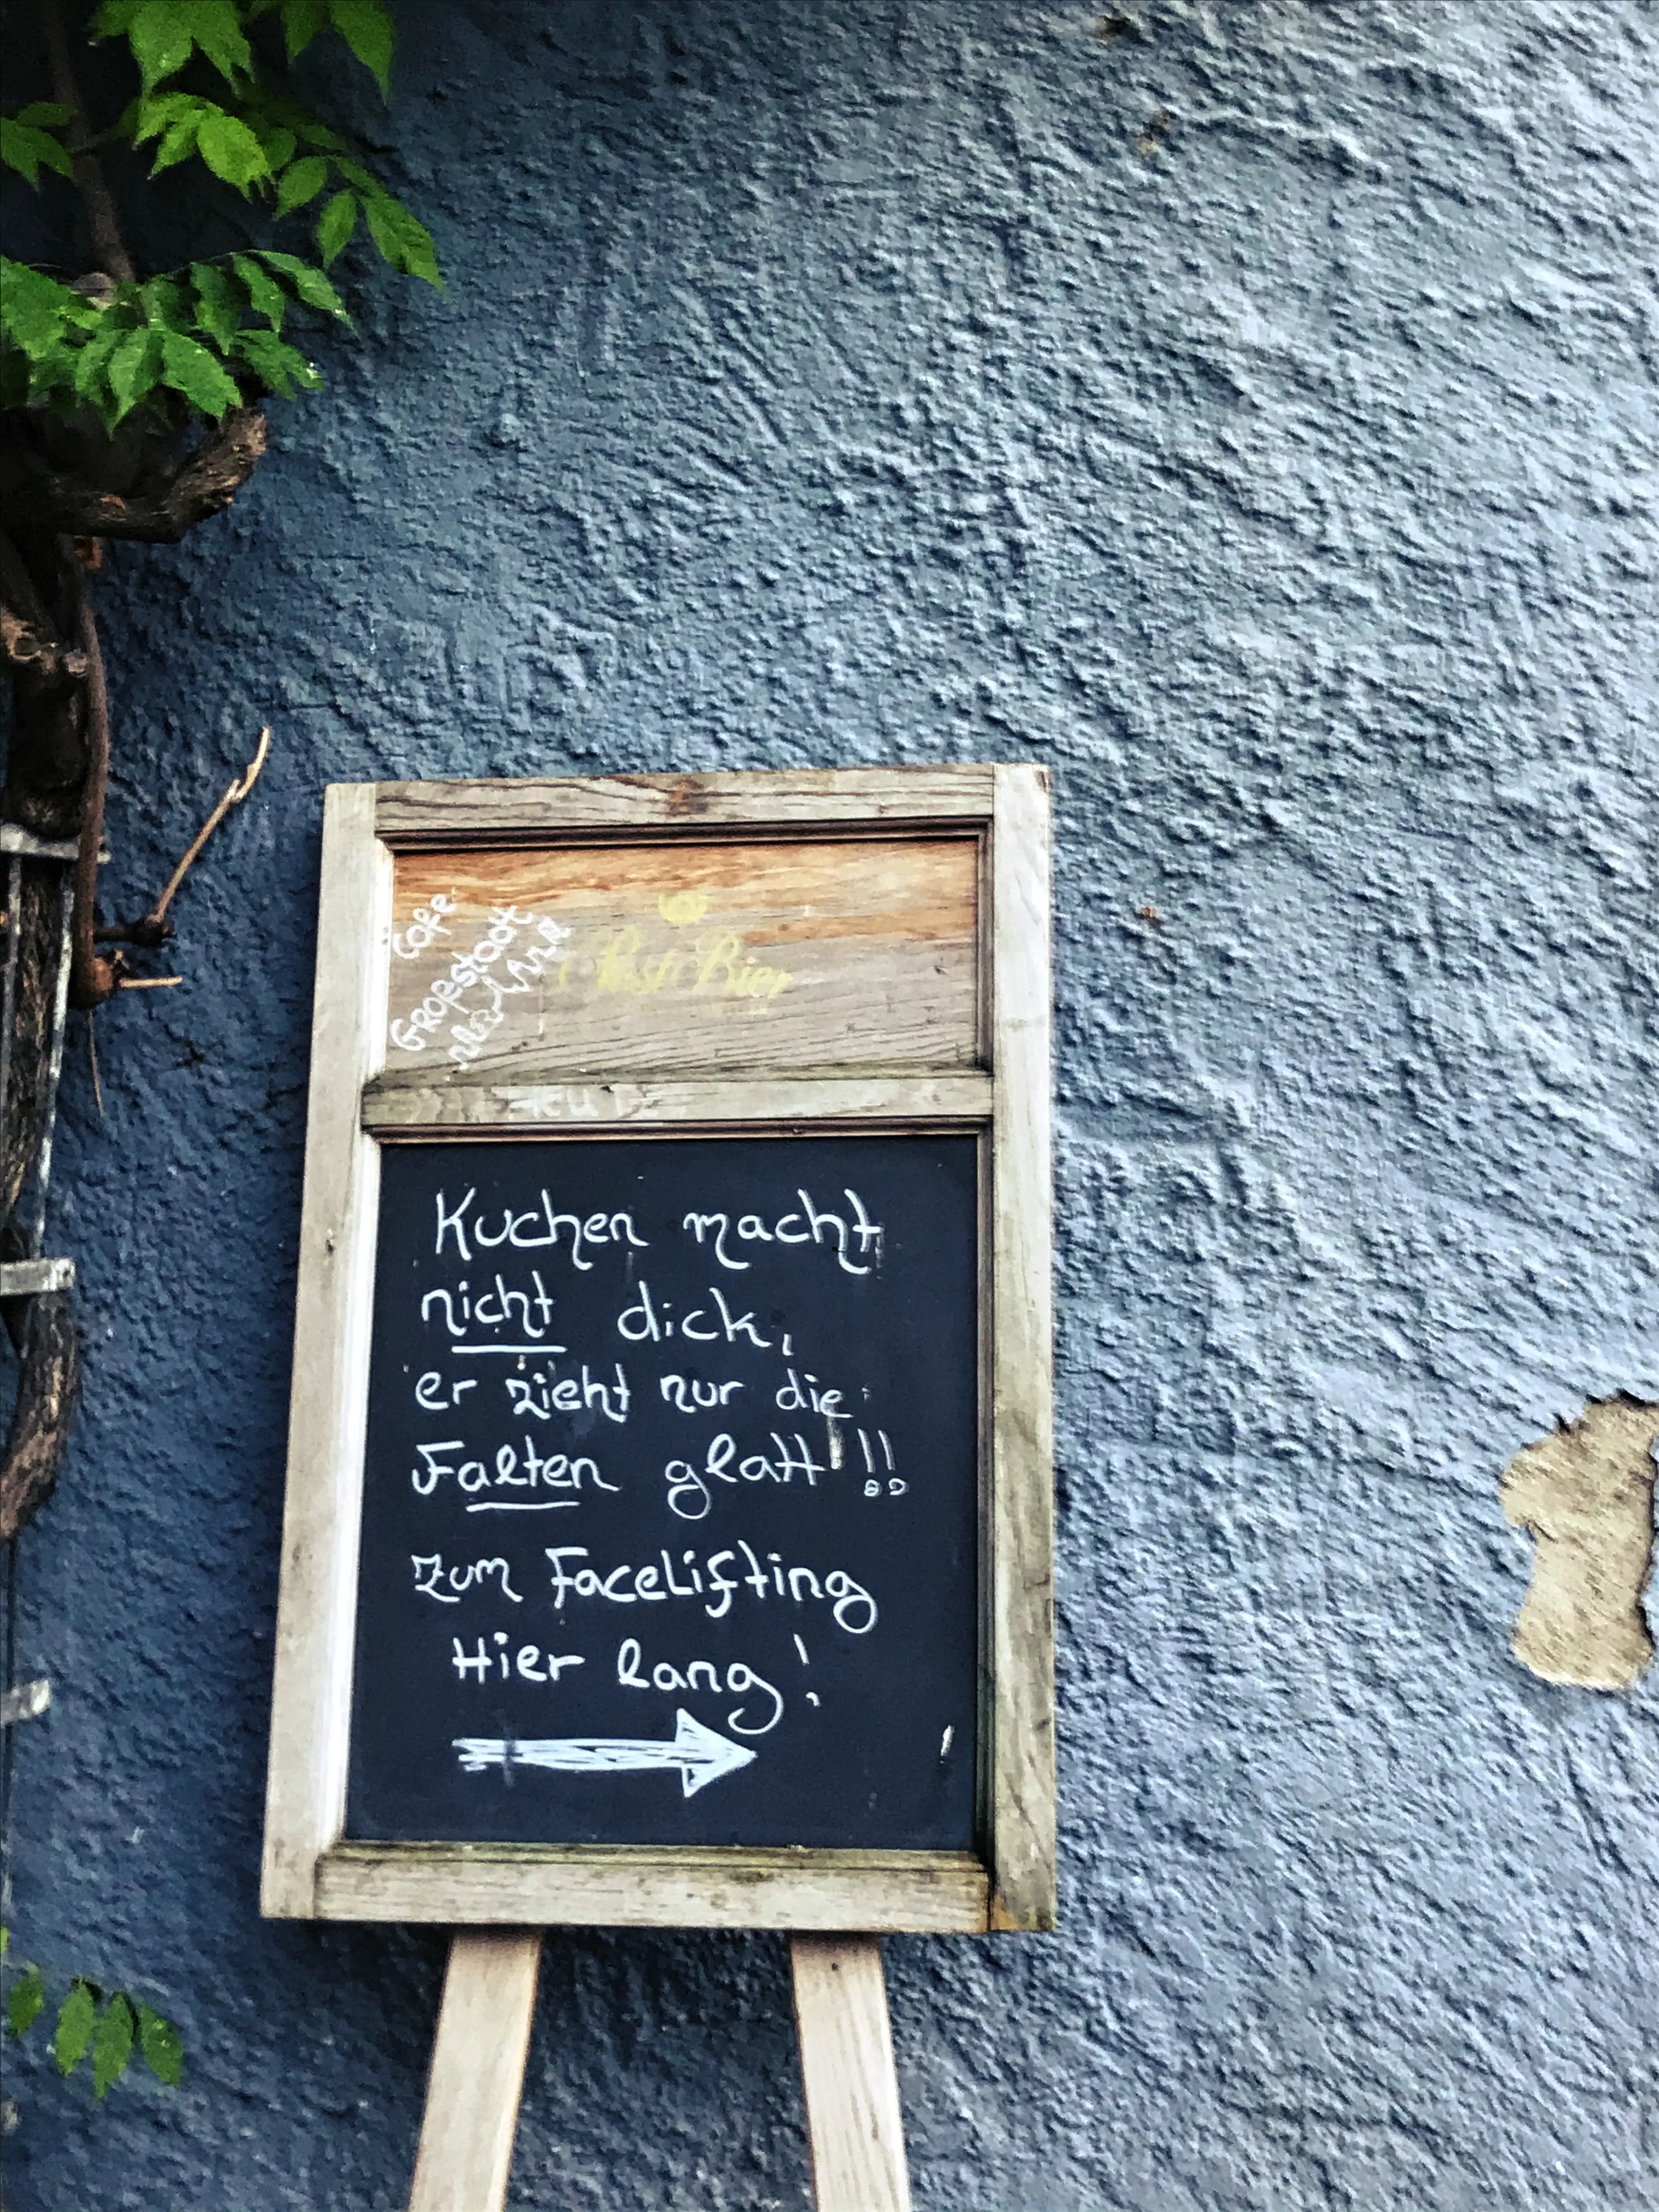 Cafe
Großstadt
Post Bier
Kuchen macht
nicht dick,
er zieht nur die
Falten glatt !!!
Zum Facelifting
Hier lang!